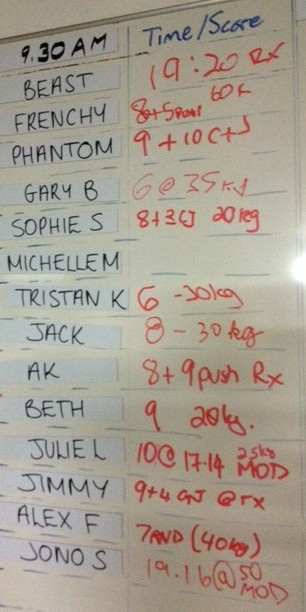 9.30 AM Time/Score
BEAST 19:20 Rx
60K
FRENCHY 8+5
PHANTOM 9+10 C+J
GARY B 6@35KJ
SOPHIE S 8+3CJ 20kg
MICHELLE M
TRISTAN K 6 -30kg
JACK 8 - 30kg
AK 8+9push Rx
BETH 9 20kg.
JULIE L 10@17.14 25kg MOD
JIMMY 9+4 C+J @ rx
ALEX F 7RND (40kg)
JONO S 19.16@50 MOD